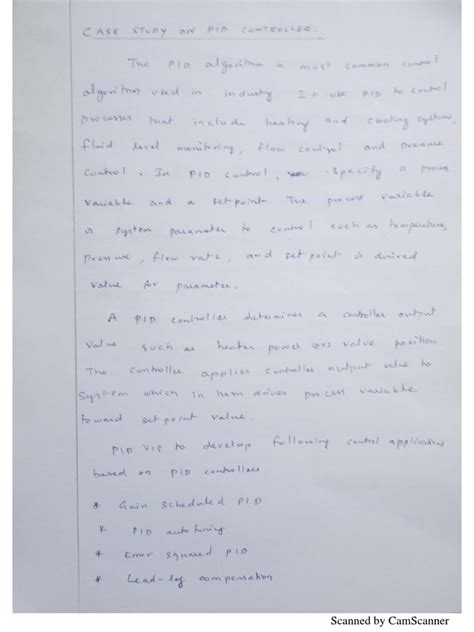 CASE STUDY ON PID CONTROLLER:
The PID algorithm is most common control
algorithm used in industry It use PID to control
processes that include heating and cooling system,
fluid level monitoring, flow control and pressure
control. In PID control, you specify a process
variable and a setpoint. The process variable
is system parameter to control such as temperature,
pressure, flow rate, and set point is desired
value for parameter.
A PID controller determines a controller output
value such as heater power (or) valve position
The controller applies controller output value to
system which in turn drives process variable
toward set point value.
PID VIs to develop following control application
based on PID controllers
* Gain Scheduled PID
* PID autotuning
* Error Squared PID
* Lead-lag compensation
Scanned by CamScanner